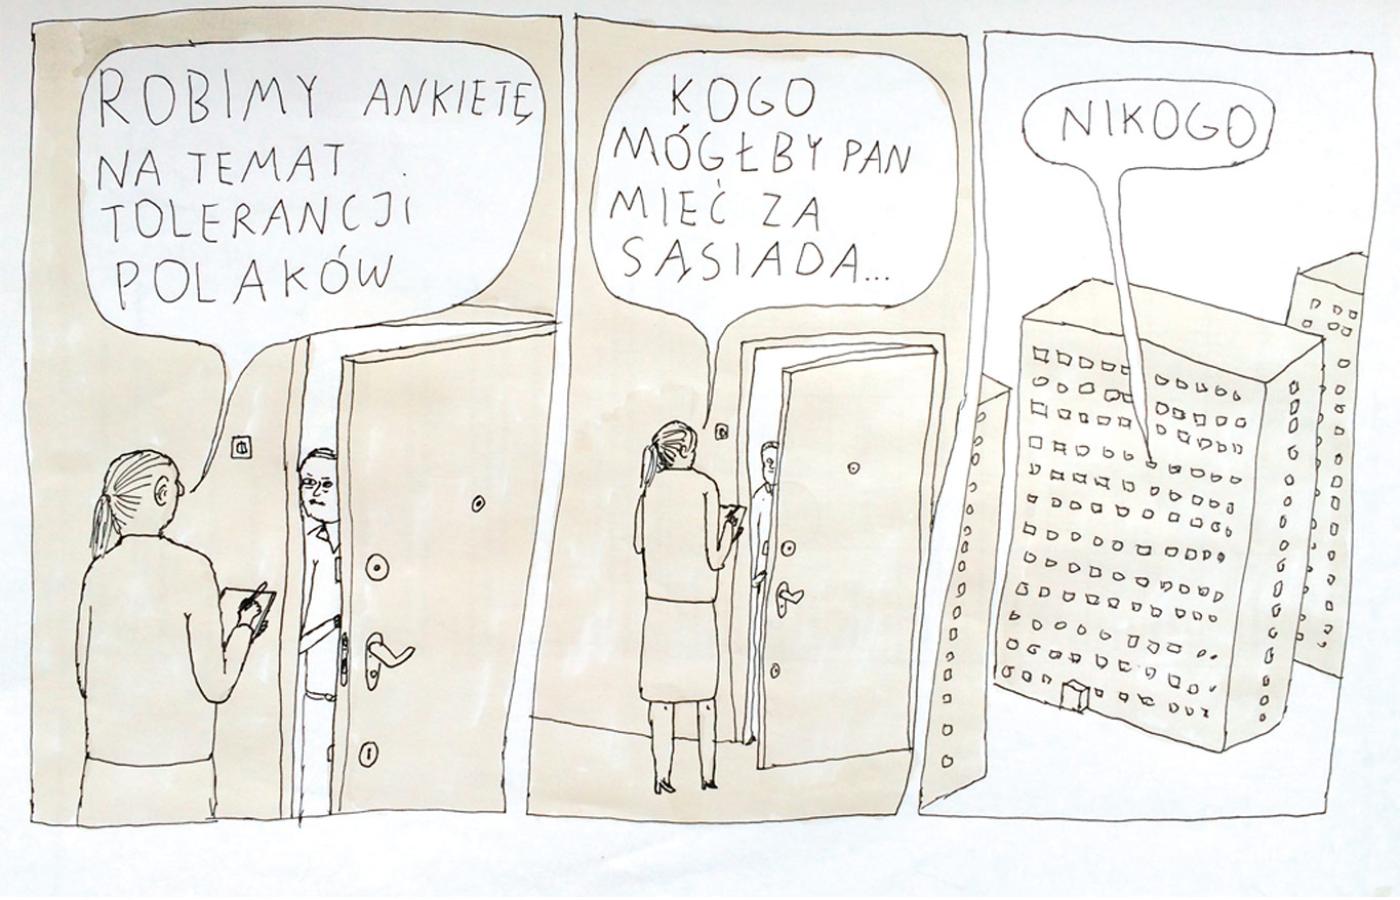 ROBIMY ANKIETĘ
NA TEMAT
TOLERANCJI
POLAKÓW
KOGO
MÓGŁBY PAN
MIEĆ ZA
SĄSIADA...
NIKOGO